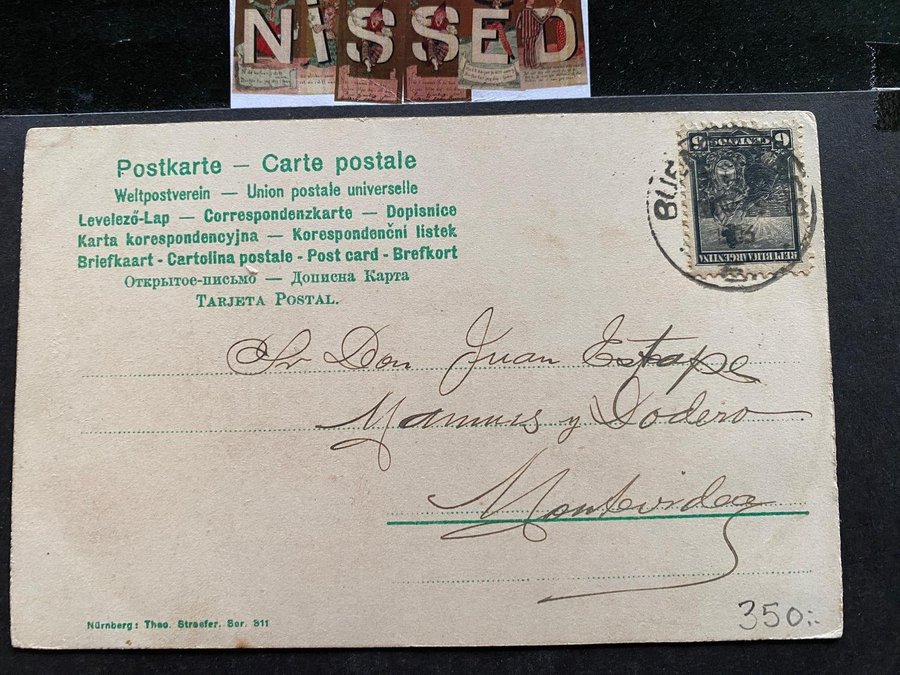 NISSED
Postkarte — Carte postale
Weltpostverein — Union postale universelle
Levelező-Lap — Correspondenzkarte — Dopisnice
Karta korespondencyjna — Korespondenční listek
Briefkaart - Cartolina postale - Post card - Brefkort
Открытое-письмо — Дописна Карта
TARJETA POSTAL.
5 CENTAVOS 5
REPUBLICA ARGENTINA
BUE
Sr Don Juan Estape
y Dodero
Montevideo
Nürnberg: Theo. Straefer. Ser. 311
350:-